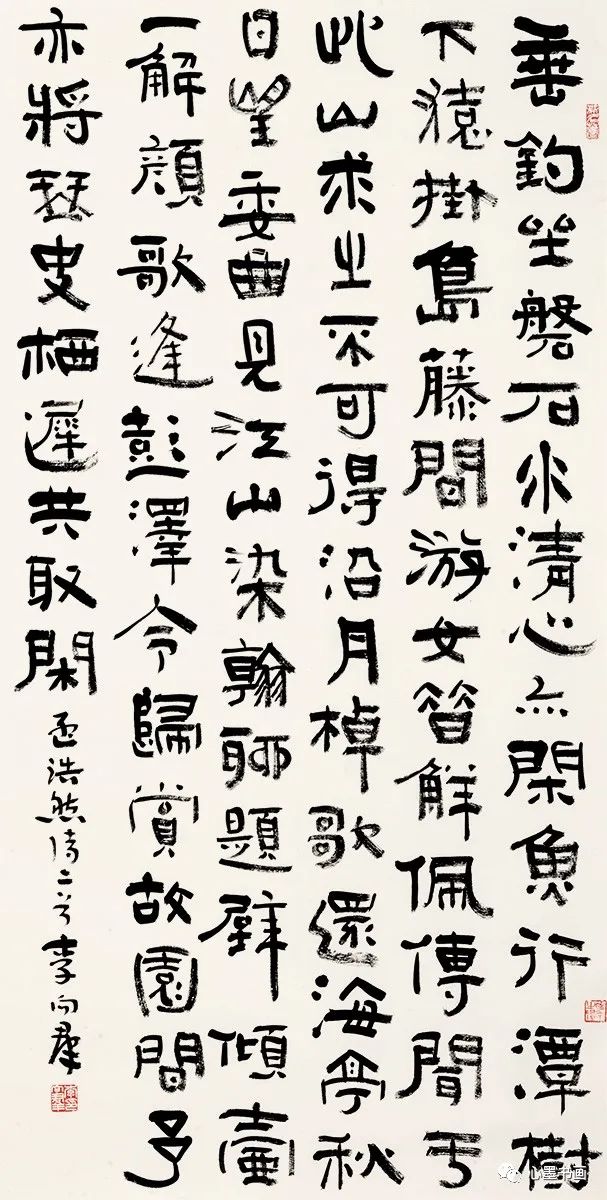 垂釣坐磐石水清心亦閑魚行潭樹
下猿掛島藤間游女昔解佩傳聞于
此山求之不可得沿月棹歌還海亭秋
日望委曲見江山染翰聊題壁傾壺
一解顔歌逢彭澤令歸賞故園間予
亦將琴史栖遲共取閑
孟浩然詩二首 李向群
心墨书画